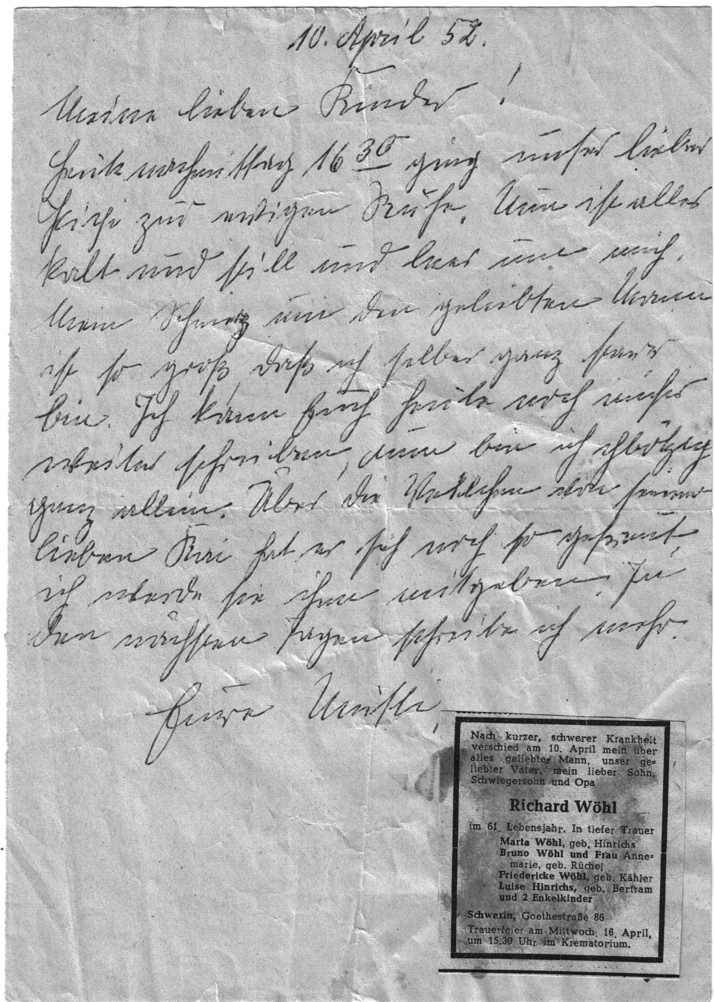 10. April 52.
Meine lieben Kinder!
Heute nachmittag 16 30 ging unser lieber
zur ewigen Ruhe. Nun ist alles
kalt und still und leer um mich.
Mein Schmerz um den geliebten Mann
ist so groß, daß ich selber ganz starr
bin. Ich kann Euch heute noch nichts
weiter schreiben, nun bin ich
ganz allein. Über die Veilchen von seiner
lieben hat er sich noch so gefreut
ich werde sie ihm mitgeben. In
den nächsten Tagen schreibe ich mehr.
Eure
Nach kurzer, schwerer Krankheit
verschied am 10. April mein über
alles geliebter Mann, unser ge-
liebter Vater, mein lieber Sohn,
Schwiegersohn und Opa
Richard Wöhl
im 61. Lebensjahr. In tiefer Trauer
Marta Wöhl, geb. Hinrichs
Bruno Wöhl und Frau Anne-
marie, geb. Rüchel
Friedericke Wöhl, geb. Kähler
Luise Hinrichs, geb. Bertram
und 2 Enkelkinder
Schwerin, Goethestraße 86
Trauerfeier am Mittwoch, 16. April,
um 15.30 Uhr im Krematorium.